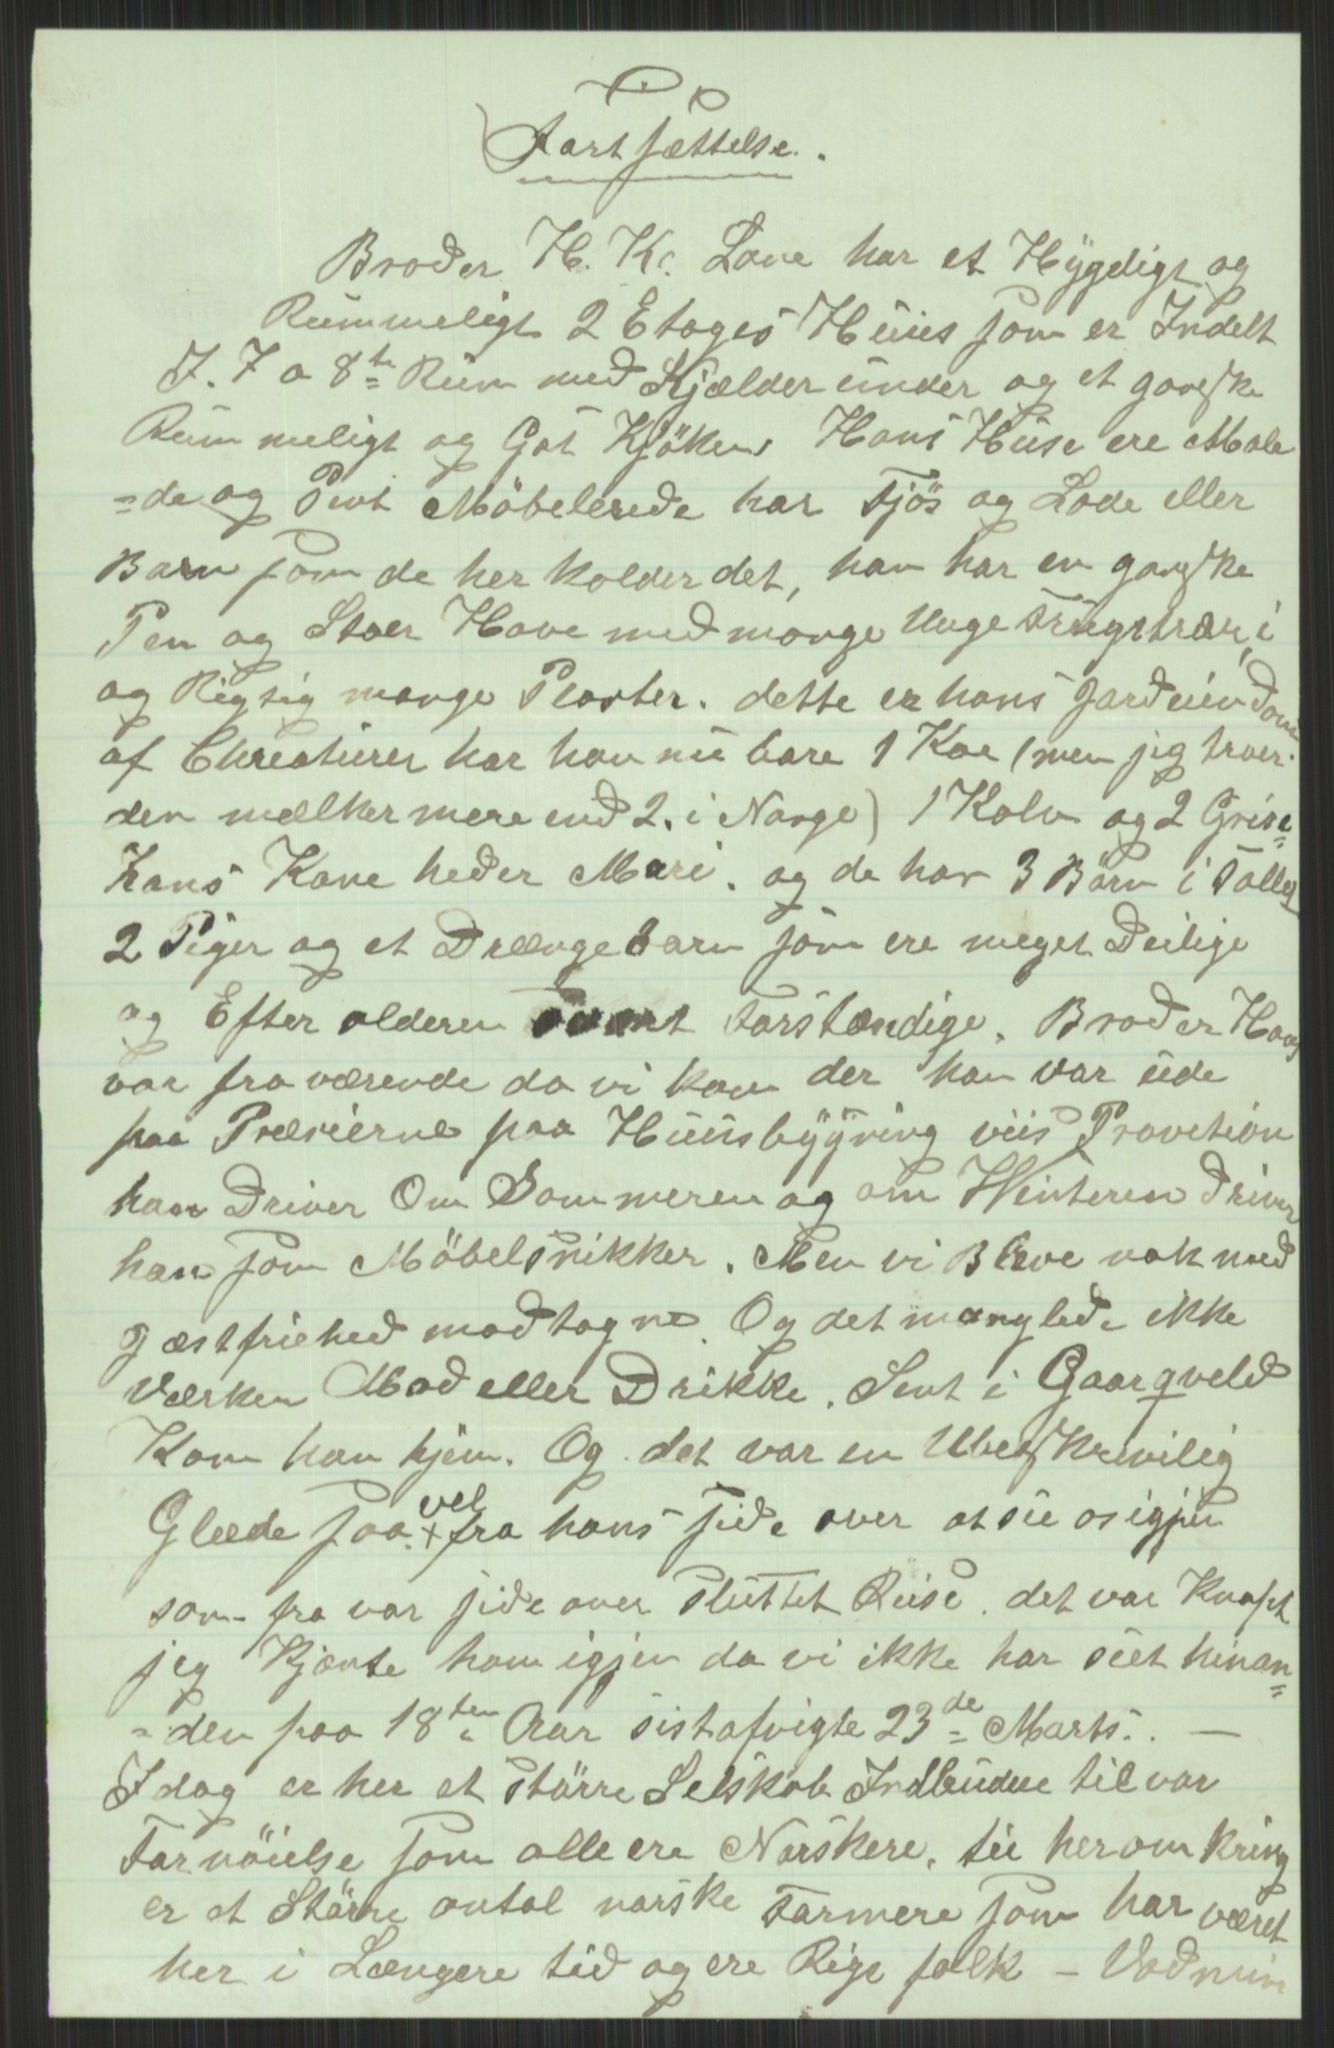 Fortsættelse.
Broder H. K. Lone har et Hÿgeligt og
Rummeligt 2 Etages Huus som er Indelt
I. 7 a 8te Rum med Kjælder under og et ganske
Rummeligt og Got Kjöken, Hans Huse ere Male
=de og Pent Möbelerede har Fjös og Lode eller
Barn som de her kolder det, han har en ganske
Pen og Stoer Have med mange Unge Frugttrær, i
og Rigtig mange Planter. dette er hans Jordeiendom
af Chreaturer har han nu bare 1 Koe (men jeg troer
den mælker mere end 2. i Norge) 1 Kalv og 2 Grise
Hans Kone heder Mari. og de har 3 Börn i Tallet
2 Piger og et Drængebarn som ere meget Deilige
og Efter alderen samt Forstændige. Broder Hans
var fraværende da vi kom der han var ude
paa Præriérne paa Huusbÿgning viis Provetion
han Driver Om Sommeren og om Winteren driver
han som Möbelsnikker. Men vi Bleve nok med
gæstfriehed modtagne. Og det manglede ikke
Værken Mad eller Drikke. Sent i Gaarqveld
Kom han hjem. Og det var en Ubeskrivilig
Glæde saa vel fra hans side over at see os igjen
som fra vor side over sluttet Reise. det var Knapt
jeg Kjænte ham igjen da vi ikke har seet hinan=
=den paa 18ten Aar sistafvigte 23de Marts. —
Idag er her et större Selskab Indbuden til vor
Fornöielse som alle ere Norskere. tie her omkring
er et Större antal norske Farmere som har været
her i Længere tid og ere Rige folk –